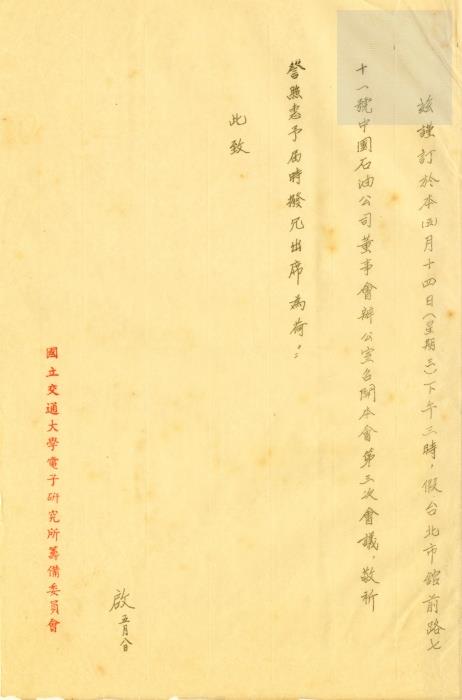 茲謹訂於本(五)月十四日(星期三)下午三時,假台北市館前路七
十一號中國石油公司董事會辦公室召開本會第三次會議,敬祈
詧照惠予屆時撥冗出席為荷。:
此致
國立交通大學電子研究所籌備委員會
啟 五月八日